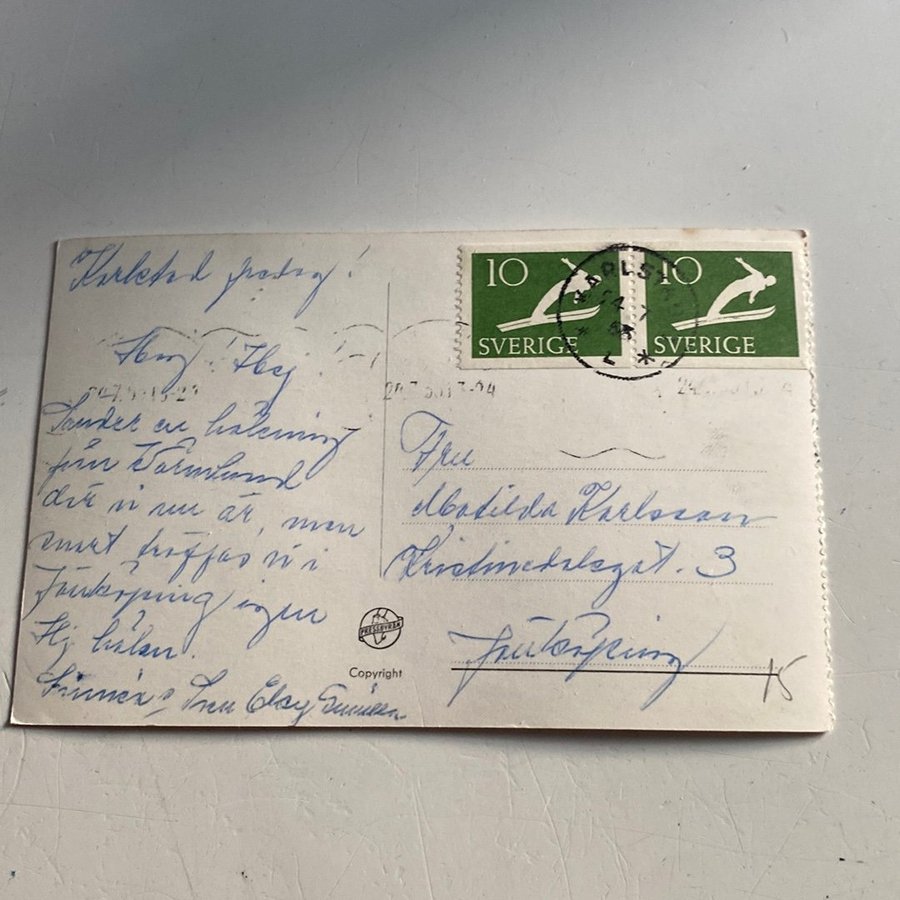 Karlstad fredag!
Hej! Hej!
Sänder en hälsning
från Värmland
där vi nu är, men
snart träffas vi i
Jönköping igen
Hej hälsn.
Elsy
10
SVERIGE
10
SVERIGE
KARLST
L *
Fru
Matilda Karlsson
Kristinedalsgat. 3
Jönköping
PRESSBYRÅN
Copyright
15